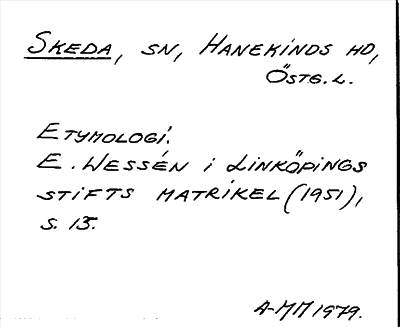 SKEDA, SN, HANEKINDS HD,
ÖSTG. L.
ETYMOLOGI.
E. WESSÉN I LINKÖPINGS
STIFTS MATRIKEL (1951),
S. 15.
A-MM 1979.